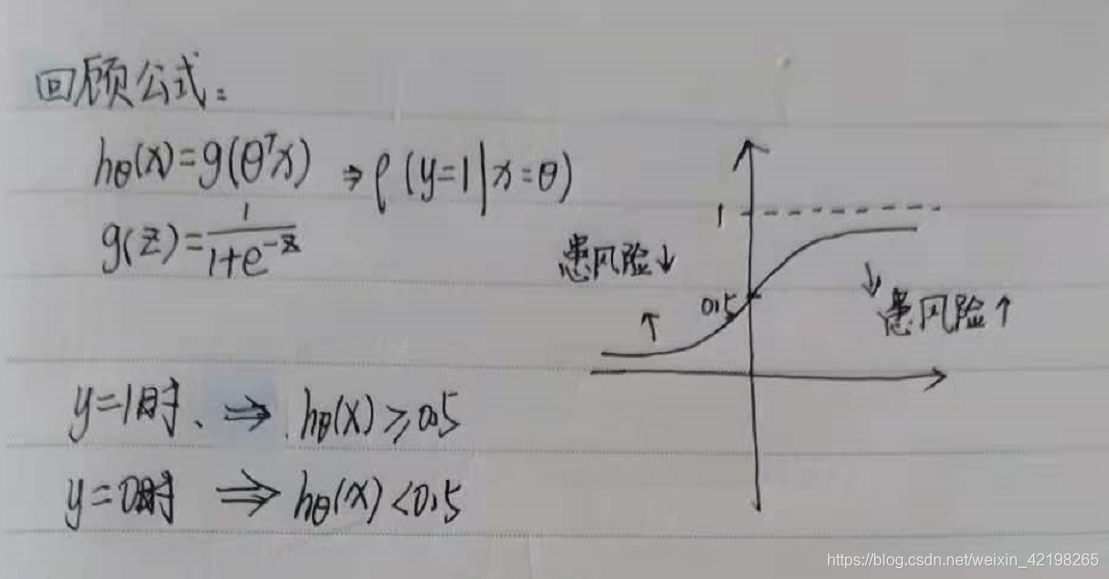 回顾公式:
hθ(x)=g(θᵀx) ⇒ P(y=1|x=θ)
g(z)=1/(1+e^-z)
1
患风险↓
0.5
↑
↓
患风险↑
y=1时、⇒ hθ(x)≥0.5
y=0时 ⇒ hθ(x)<0.5
https://blog.csdn.net/weixin_42198265